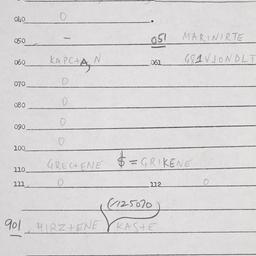 040 0
050 - 051 MARINIRTE
060 KAPCTAN 061
070 0
080 0
090 0
100 0
110 GRECTENE $ = GRIKENE
111 0 112 0
(125070)
901 HIRZTENE KASTE